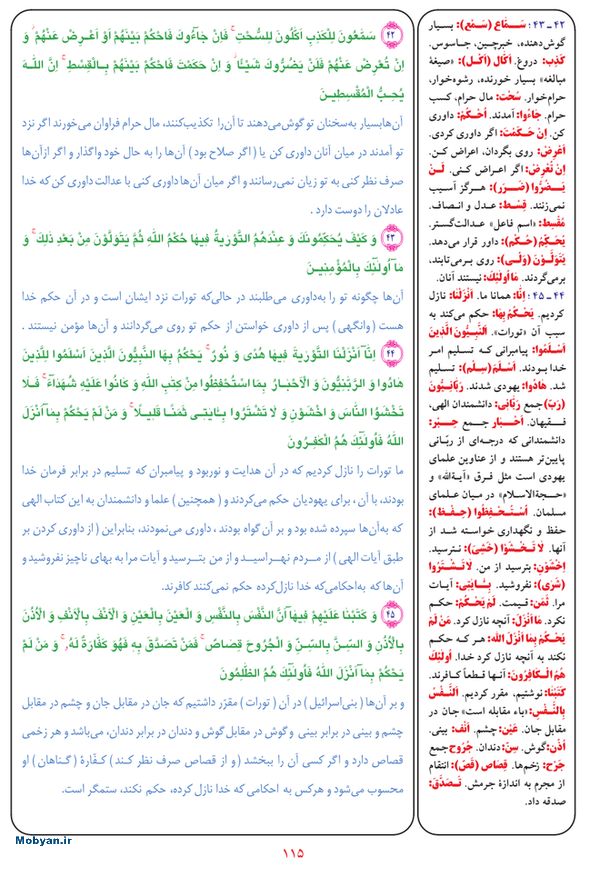 ۴۲ـ۴۳: سَـمّاع (سَـمْع): بسیار
گوش‌دهنده، خبرچین، جاسوس.
کَذِب: دروغ. اَکّال (اَکْـل): «صیغهٔ
مبالغه» بسیار خورنده، رشوه‌خوار،
حرام‌خوار. سُحْت: مال حرام، کسب
حرام. جَاءُوا: آمدند. اُحْکُمْ: داوری
کن. اِنْ حَکَمْتَ: اگر داوری کردی.
اَعْرِضْ: روی بگردان، اعراض کن.
اِنْ تُعْرِضْ: اگر اعراض کنی. لَـنْ
یَـضُرُّوا (ضَـرَر): هـرگز آسیب
نمی‌زنند. قِسـط: عـدل و انـصاف.
مُقْسِط: «اسم فاعل» عدالت‌گستر.
یُحَکِّمُ (حُکْم): داور قرار می‌دهد.
یَتَوَلَّوْنَ (وَلْی): روی برمی‌تابند،
برمی‌گردند. مَا اُولٰئِكَ: نیستند آنان.
۴۴ـ۴۵: اِنّا: همانا ما. اَنْزَلْنا: نازل
کردیم. یَحْکُمُ بِهَا: حکم می‌کند به
سبب آن «تورات». اَلنَّبِیُّونَ الَّذِینَ
اَسْلَمُوا: پیامبرانی که تسلیم امر
خدا بـودند. اَسْلَمَ (سِلْم): تسلیم
شد. هَادُوا: یهودی شدند. رَبّانِیُّونَ
(رَبّ) جمع رَبّانی: دانشمندان الهی،
فقیهان. اَحْبَار جـمع حِـبْر:
دانشمندانی که درجه‌ای از ربّانی
پایین‌تر هستند و از عناوین علمای
یهودی است مثل فرق «آیةاللّه» و
«حـجةالاسـلام» در میـان عـلمای
مسلمان. اُسْـتُحْفِظُوا (حِـفْظ):
حفظ و نگهداری خواسته شـد از
آنها. لَا تَـخْشَوْا (خَشْی): نـترسید.
اِخْشَوْنِ: بترسید از من. لَا تَشْتَرُوا
(شَرْی): نفروشید. بِـئَایَتِی: آیـات
مرا. ثَمَن: قیمت. لَمْ یَحْکُمْ: حکم
نکرد. مَا اَنْزَلَ: آنچه نازل کرد. مَنْ لَمْ
یَحْکُمْ بِمَا اَنْزَلَ اللّٰه: هر کـه حکم
نکند به آنچه نازل کرد خدا. اُولٰئِكَ
هُمُ الْـکَافِرُونَ: آنـها قـطعاً کـافرند.
کَتَبْنَا: نوشتیم، مقرر کردیم. اَلنَّفْسُ
بِالنَّفْسِ: «باء مقابله است» جان در
مقابل جان. عَیْن: چشم. اَنْف: بینی.
اُذُن: گوش. سِنّ: دندان. جُرُوح جمع
جَرْح: زخم‌ها. قِصَاص (قَصّ): انتقام
از مجرم به اندازهٔ جرمش. تَـصَدَّقَ:
صدقه داد.
۴۲ سَمّٰعُونَ لِلْکَذِبِ اَکّٰلُونَ لِلسُّحْتِ فَاِنْ جَآءُوكَ فَاحْکُمْ بَیْنَهُمْ اَوْ اَعْرِضْ عَنْهُمْ وَ
اِنْ تُعْرِضْ عَنْهُمْ فَلَنْ یَضُرُّوكَ شَیْئًا وَ اِنْ حَکَمْتَ فَاحْکُمْ بَیْنَهُمْ بِالْقِسْطِ اِنَّ اللّٰهَ
یُحِبُّ الْمُقْسِطِینَ
آن‌هابسیار به‌سخنان تو گوش‌می‌دهند تا آن‌را تکذیب‌کنند، مال حرام فراوان می‌خورند اگر نزد
تو آمدند در میان آنان داوری کن یا ( اگر صلاح بود ) آن‌ها را به حال خود واگذار و اگر ازآن‌ها
صرف نظر کنی به تو زیان نمی‌رسانند و اگر میان آن‌ها داوری کنی با عدالت داوری کن که خدا
عادلان را دوست دارد .
۴۳ وَ کَیْفَ یُحَکِّمُونَكَ وَ عِنْدَهُمُ التَّوْرٰیةُ فِیهَا حُکْمُ اللّٰهِ ثُمَّ یَتَوَلَّوْنَ مِنْ بَعْدِ ذٰلِكَ وَ
مَآ اُولٰٓئِكَ بِالْمُؤْمِنِینَ
آن‌ها چگونه تو را به‌داوری می‌طلبند در حالی‌که تورات نزد ایشان است و در آن حکم خدا
هست (وانگهی) پس از داوری خواستن از حکم تو روی می‌گردانند و آن‌ها مؤمن نیستند .
۴۴ اِنَّآ اَنْزَلْنَا التَّوْرٰیةَ فِیهَا هُدًی وَ نُورٌ یَحْکُمُ بِهَا النَّبِیُّونَ الَّذِینَ اَسْلَمُوا لِلَّذِینَ
هَادُوا وَ الرَّبّٰنِیُّونَ وَ الْاَحْبَارُ بِمَا اسْتُحْفِظُوا مِنْ کِتٰبِ اللّٰهِ وَ کَانُوا عَلَیْهِ شُهَدَآءَ فَـلَا
تَخْشَوُا النَّاسَ وَ اخْشَوْنِ وَ لَا تَشْتَرُوا بِـئَایٰتِی ثَمَنًا قَلِیلًا وَ مَنْ لَمْ یَحْکُمْ بِمَآ اَنْزَلَ
اللّٰهُ فَاُولٰٓئِكَ هُمُ الْکٰفِرُونَ
ما تورات را نازل کردیم که در آن هدایت و نوربود و پیامبران که تسلیم در برابر فرمان خدا
بودند، با آن ، برای یهودیان حکم می‌کردند و ( همچنین ) علما و دانشمندان به این کتاب الهی
که به‌آن‌ها سپرده شده بود و بر آن گواه بودند ، داوری می‌نمودند، بنابراین ( از داوری کردن بر
طبق آیات الهی ) از مـردم نهـراسیـد و از من بتـرسید و آیات مرا به بهای ناچیز نفروشید و
آن‌ها که به‌احکامی‌که خدا نازل‌کرده حکم نمی‌کنند کافرند.
۴۵ وَ کَتَبْنَا عَلَیْهِمْ فِیهَآ اَنَّ النَّفْسَ بِالنَّفْسِ وَ الْعَیْنَ بِالْعَیْنِ وَ الْاَنْفَ بِالْاَنْفِ وَ الْاُذُنَ
بِالْاُذُنِ وَ السِّنَّ بِالسِّنِّ وَ الْجُرُوحَ قِصَاصٌ فَمَنْ تَصَدَّقَ بِهِ فَهُوَ کَفَّارَةٌ لَهُ وَ مَنْ لَمْ
یَحْکُمْ بِمَآ اَنْزَلَ اللّٰهُ فَاُولٰٓئِكَ هُمُ الظّٰلِمُونَ
و بر آن‌ها ( بنی‌اسرائیل ) در آن ( تورات ) مقرّر داشتیم که جان در مقابل جان و چشم در مقابل
چشم و بینی در برابر بینی و گوش در مقابل گوش و دندان در برابر دندان، می‌باشد و هر زخمی
قصاص دارد و اگر کسی آن را ببخشد (و از قصاص صرف نظر کند ) کفّارهٔ ( گناهان ) او
محسوب می‌شود و هرکس به احکامی که خدا نازل کرده، حکم نکند، ستمگر است.
Mobyan.ir
۱۱۵